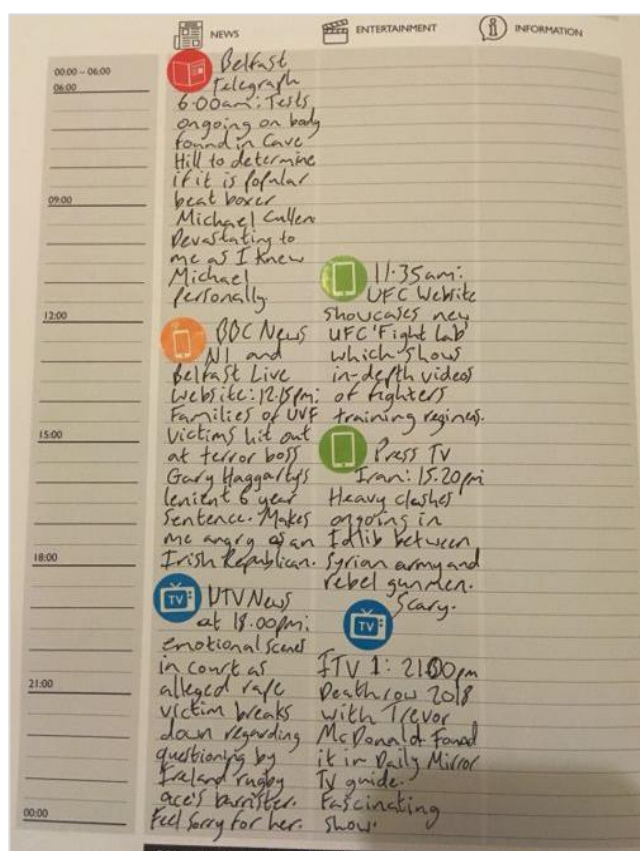 NEWS
ENTERTAINMENT
INFORMATION
00:00 – 06:00
06:00
09:00
12:00
15:00
18:00
21:00
00:00
Belfast
Telegraph
6.00am: Tests
ongoing on body
found in Cave
Hill to determine
if it is popular
beat boxer
Michael Cullen.
Devastating to
me as I knew
Michael
personally
BBC News
NI and
Belfast Live
Website: 12.15pm:
Families of UVF
victims hit out
at terror boss
Gary Haggarty's
lenient 6 year
sentence. Makes
me angry as an
Irish Republican.
TV
UTV News
at 18.00pm:
emotional scenes
in court as
alleged rape
victim breaks
down regarding
questioning by
Ireland rugby
ace's barrister.
Feel sorry for her.
11.35am:
UFC Website
showcases new
UFC 'Fight Lab'
which shows
in-depth videos
of fighters
training regimes.
Press TV
Iran: 15.20pm
Heavy clashes
ongoing in
Idlib between
Syrian army and
rebel gunmen.
Scary.
TV
ITV 1: 21.00pm
Death row 2018
with Trevor
McDonald. Found
it in Daily Mirror
TV guide.
Fascinating
show.